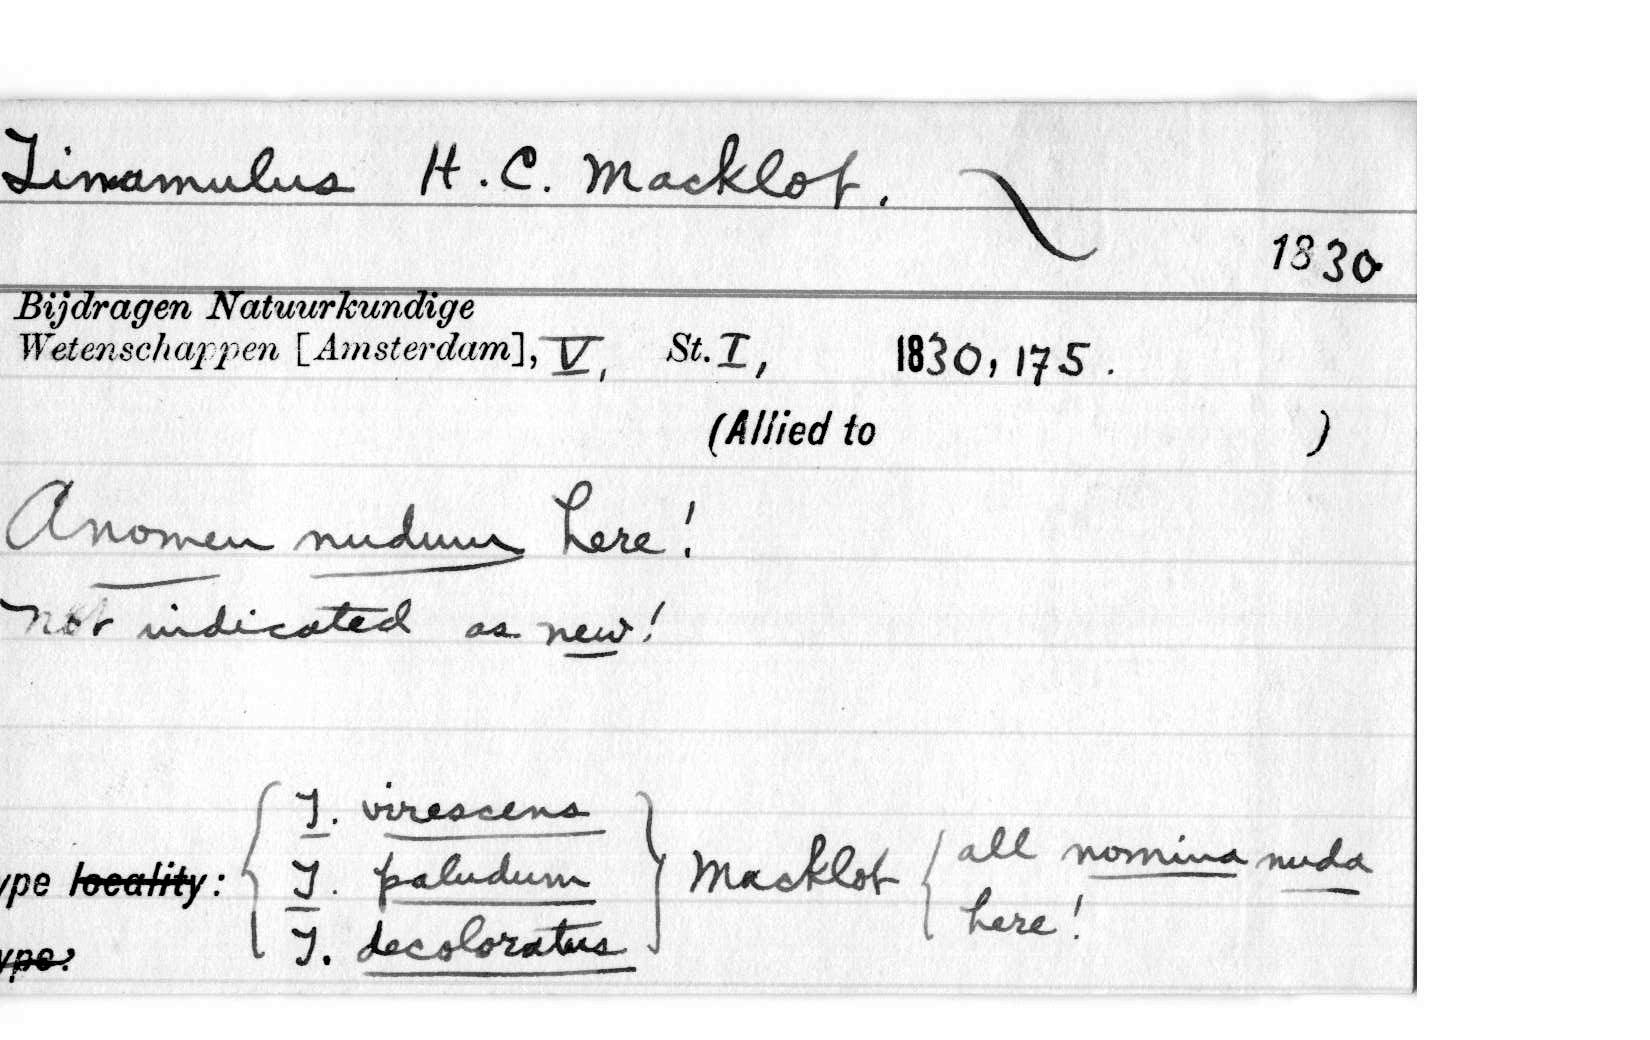 Tinamulus H. C. Macklot.
1830
Bijdragen Natuurkundige
Wetenschappen [Amsterdam], V, St. I, 1830, 175.
(Allied to )
A nomen nudum here!
not indicated as new!
T. virescens
ype locality: T. paludum Macklot all nomina nuda here!
ype: T. decoloratus